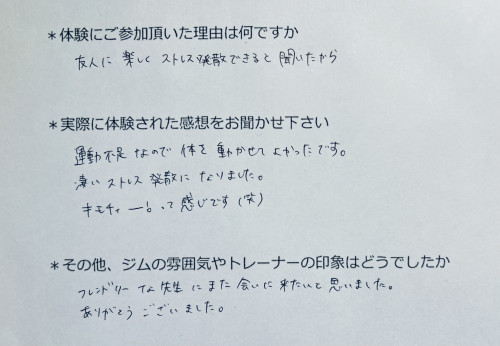 ＊体験にご参加頂いた理由は何ですか
友人に楽しくストレス発散できると聞いたから
＊実際に体験された感想をお聞かせ下さい
運動不足なので体を動かせてよかったです。
凄いストレス発散になりました。
キモチィー！って感じです(笑)
＊その他、ジムの雰囲気やトレーナーの印象はどうでしたか
フレンドリーな先生にまた会いに来たいと思いました。
ありがとうございました。